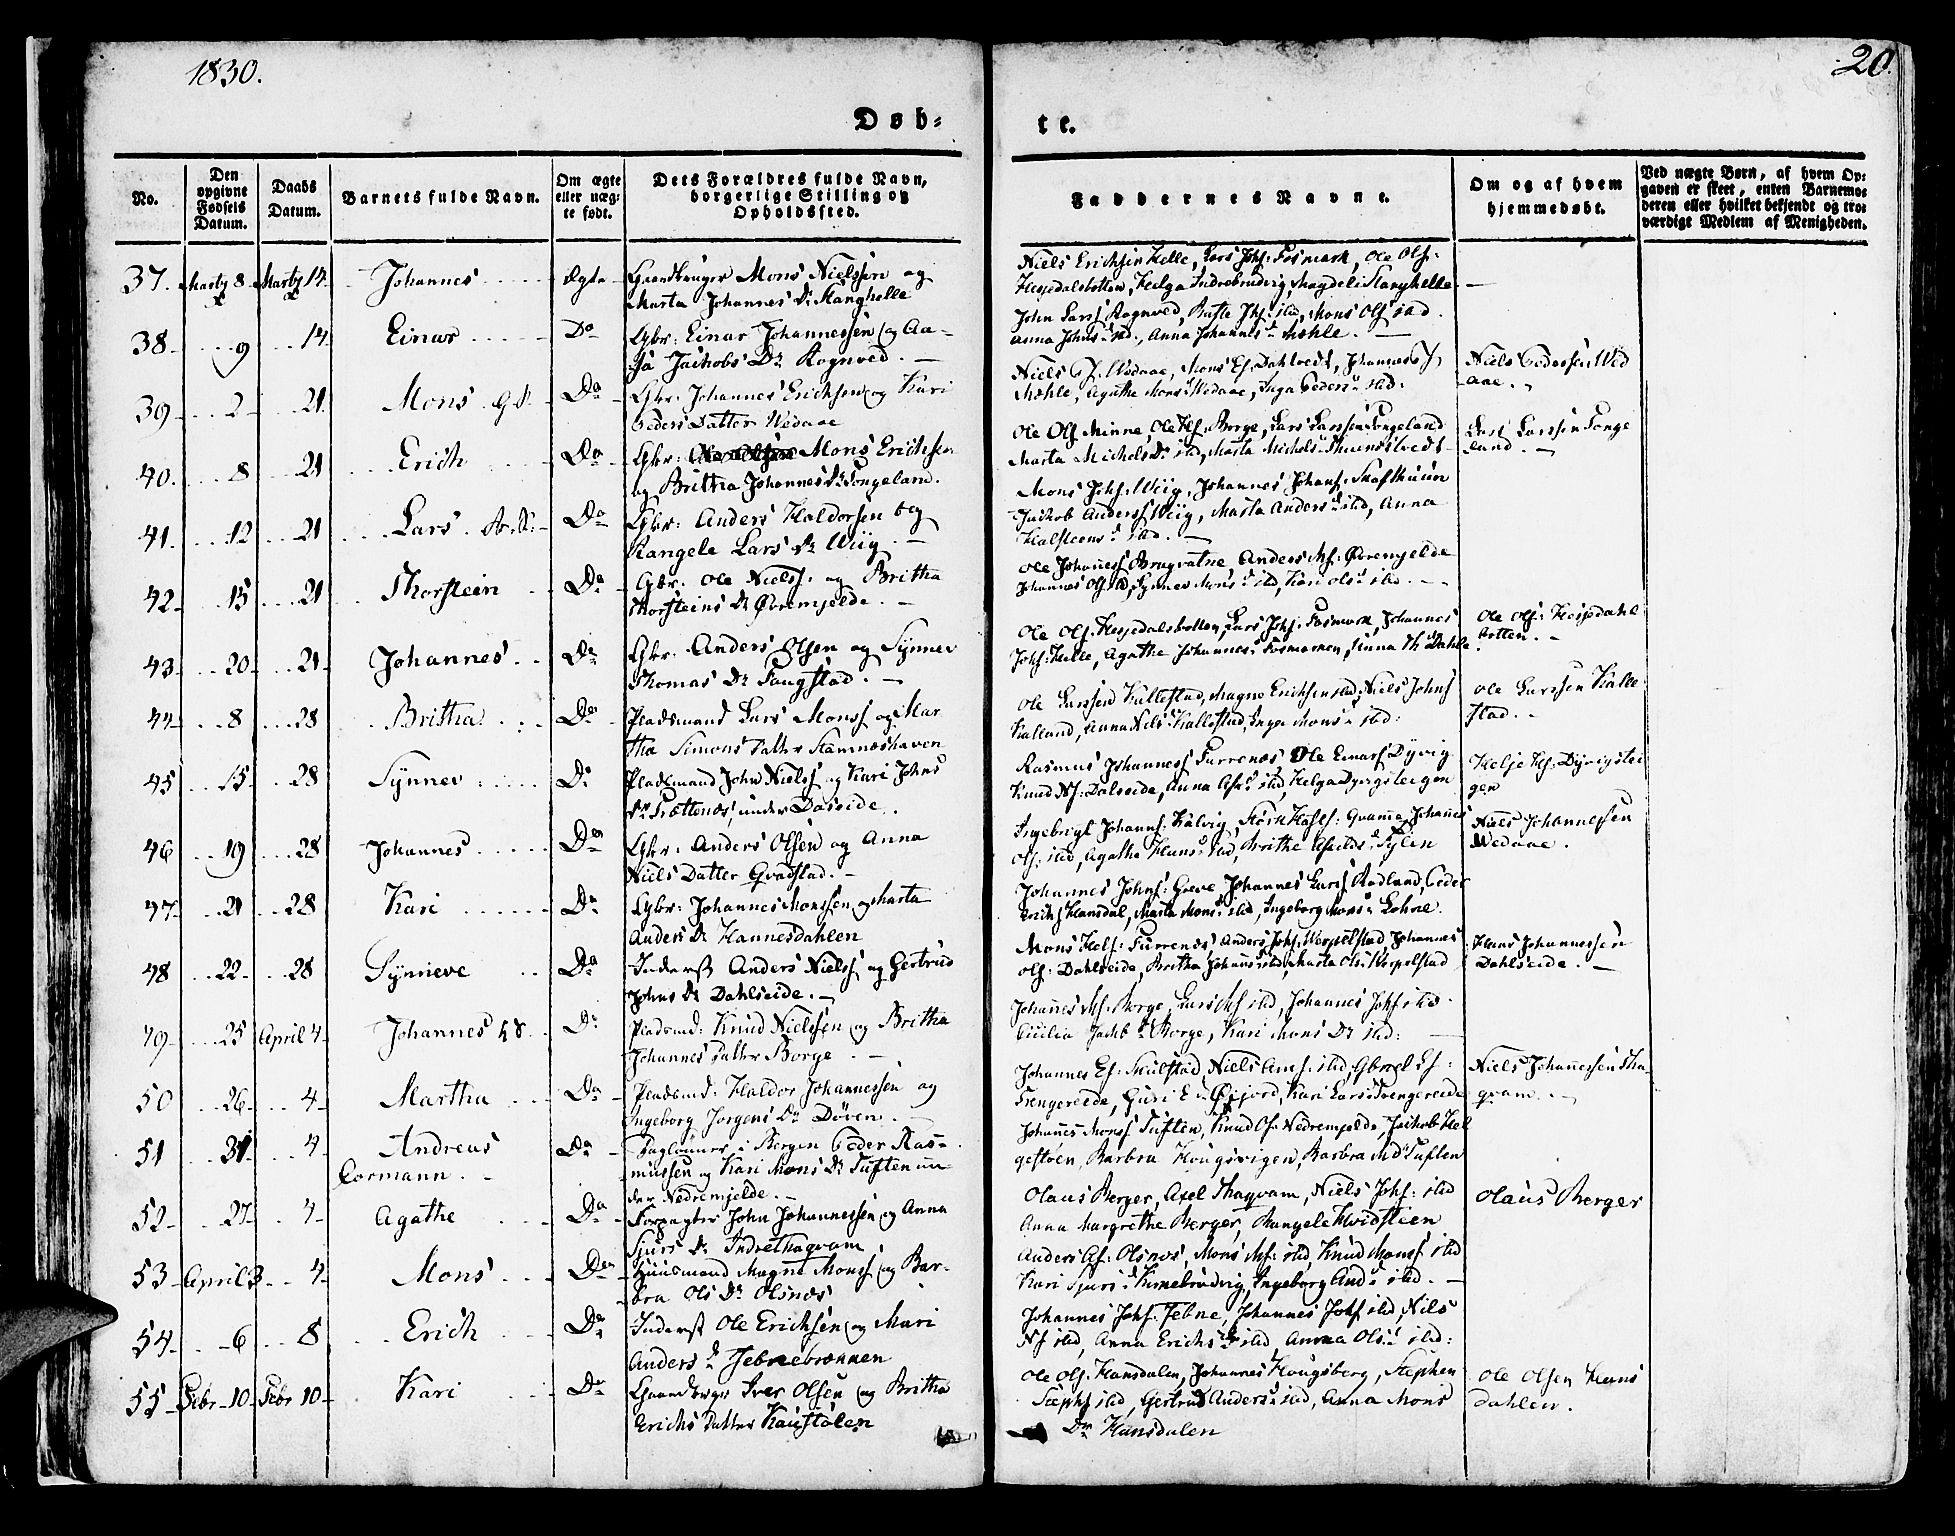 1830.
20.
Døb-
te.
No.
Den opgivne Fødsels Datum.
Daabs Datum.
Barnets fulde Navn.
Om ægte eller uæg-te født.
Dets Forældres fulde Navn, borgerlige Stilling og Opholdssted.
Faddernes Navne.
Om og af hvem hjemmedøbt.
Ved uægte Børn, af hvem Op-gaven er skeet, enten Barnemo-deren eller hvilket bekjendt og tro-værdigt Medlem af Menigheden.
37. Marty 8 Marty 14 Johannes Ægte Gaardbruger Mons Nielsen og
Marta Johannes Dr Stanghelle
Niels Erichsen Helle, Lars Johs: Fosmark, Ole Ols:
Hesjedalsbotten, Helga Indrebrudvig, Magdeli Stanghelle
38 9 14 Einar Do Gbr: Einar Johannessen og Aa-
sa Jackobs Dr Rognved.
John Larss Rognved, Mons Ols istd.
Anna Johns istd., Anna Johannes Mæhle.
39 2 21. Mons Do Gbr: Johannes Erichsen og Kari
Peders Datter Wedaae
Mons Dahlvedt, Johannes
Mæhle, Agathe Mons Wedaae, Inga Peders istd:
Niels Pedersen Wed
aae.
40. 8 21 Erich Do Gbr: Mons Erichsen
og Brittha Johannes Dr Tongeland.
Ole Ols Minne, Ole Borge, Lars Larssen Tongeland
Marta Michels Dr istd, Marta Michels
Lars Larssen Tonge
land.
41. 12 21 Lars Do Gbr: Anders Haldorsen og
Rangele Lars Dr Wiig.
Mons Johs: Wiig, Johannes Johans: Skafthuun
Jackob Anderss Wiig, Marta Anders istd, Anna
Halsteens istd.
42 15 21 Thorstein Do Gbr. Ole Nielss. og Brittha
Thorsteins Dr Øvremjelde.
Ole Johaness Brugvatne, Anders Ms: Øvremjelde
Johannes Ols istd, Synnev Mons istd, Kari Ols istd.
43 20 21 Johannes Do Gbr. Anders Olsen og Synnev
Thomas Dr Fangstad.
Ole Ols: Hesjedalsbotten, Lars Johs: Fosmark, Johannes
Johs: Helle, Agathe Johannes Fosmarken, Dahle
Ole Ols: Hesjedahls
botten.
44 8 28 Brittha Do Pladsmand Lars Monss og Mar
tha Simons Datter Stamneshaven
Ole Larssen Kallestad, Magne Erichsen istd, Niels Johns
Kalland, Anna Niels Kallestad, Inger Mons istd:
Ole Larssen Kalle
stad.
45 15 28 Synnev Do Pladsmand John Nielss og Kari Johns
Dr Trættenæs, under Dalseide.
Rasmus Johanness Furrenæs, Ole Einars Dyvig
Knud Ns: Dalseide, Anna istd, Helga Dyvigsteigen
Helje Hs: Dyvigstei
gen
46 19 28 Johannes Do Gbr: Anders Olsen og Anna
Niels Datter Qvadstad.
Ingebrigt Johanns: Kalvig, Qvamme, Johannes
Ols: istd, Agathe Hans istd, Brithe
Niels Johannessen
Wedaae.
47 21 28 Kari Do Gbr: Johannes Monssen og Marta
Anders Dr Hannesdahlen
Johannes Johns: Greve, Johannes Larss Rødland, Peder
Erichs Hansdal, Marta Mons istd, Ingeborg Mons Lohne.
48 22 28 Synneve Do Inderst Anders Nielss og Gertrud
Johns Dr Dahlseide.
Mons Hels: Furrenæs, Anders Johs: Worpelstad, Johannes
Ols: Dahlseide, Brittha Johans istd, Marta Ols: Worpelstad
Hans Johannessen
Dahlseide.
49 25 April 4 Johannes Do Pladsmd: Knud Nielssen og Brittha
Johannes Datter Borge
Johannes Ms. Borge, Lars istd, Johannes Johs istd.
Cicilia Jackb Borge, Kari Mons Dr istd:
50 26 4 Martha Do Pladsmd: Haldor Johannessen og
Ingeborg Jørgens Dr Døven.
Johannes Skulstad, Niels istd,
Trengereide, Kari Lars Trengereide
Niels Johannessen Tha-
qvam.
51 31 4 Andreas
Cormann Do Dagløuner i Bergen Peder Ras-
mussen og Kari Mons Dr Tuften un-
der Nedremjelde.
Johannes Monss Tuften, Knud Ols Nedremjelde, Jackob Hel
gestøen, Barbra Hougsvigen, Barbra Tuften
52 27 4 Agathe Do Forpagter John Johannessen og Anna
Sjurs Dr Indrethaqvam
Olaus Berger, Axel Thaqvam, Niels Johs: istd
Anna Margrethe Berger, Rangele Hvidsteen
Olaus Berger
53 April 3 4 Mons Do Huusmand Magne Monss og Bar-
bra Ols Dr Olsnæs
Anders As: Olsnæs, Mons Ms: istd, Knud Monss istd
Kari Sjurs Ingeborg And istd.
54 6 8 Erich Do Inderst Ole Erichsen og Mari
Anders Jebnebrønnen
Johannes Johs. Jebne, Johannes Johs istd, Nils
Ns istd, Anna Erichs istd, Anna Ols istd:
55 Febr 10 Febr 10 Kari Do Gaardbrgr Iver Olsen og Brittha
Erichs Datter Kaustølen
Ole Ols. Hansdalen, Johannes Hougsberg, Stephen
Stephs istd, Gertrud Anders istd, Anna Mons
Dr Hansdalen
Ole Olsen Hans
dahlen.